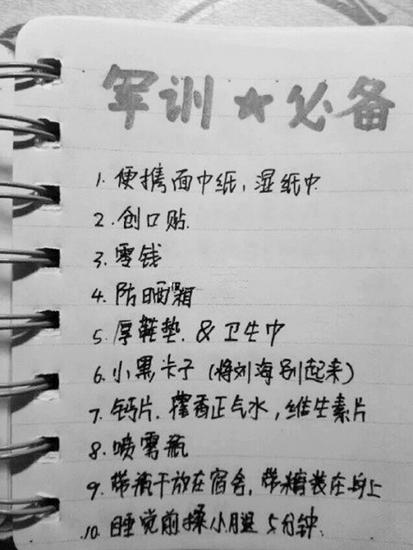 军训★必备
1. 便携面巾纸, 湿纸巾
2. 创口贴
3. 零钱
4. 防晒霜
5. 厚鞋垫. & 卫生巾
6. 小黑卡子 (将刘海别起来)
7. 钙片. 藿香正气水, 维生素片
8. 喷雾瓶
9. 带瓶干放在宿舍, 带糖装在身上
10. 睡觉前揉小腿 5分钟.